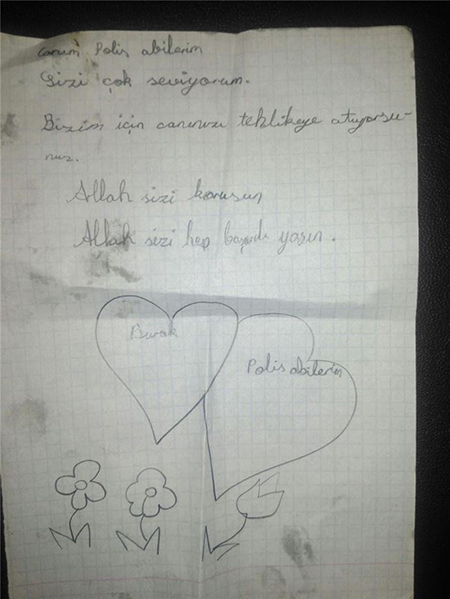 canım Polis abilerim
Sizi çok seviyorum.
Bizim için canınızı tehlikeye atıyorsu-
nuz.
Allah sizi korusun
Allah sizi hep başarılı yapsın.
Burak
Polis abilerim